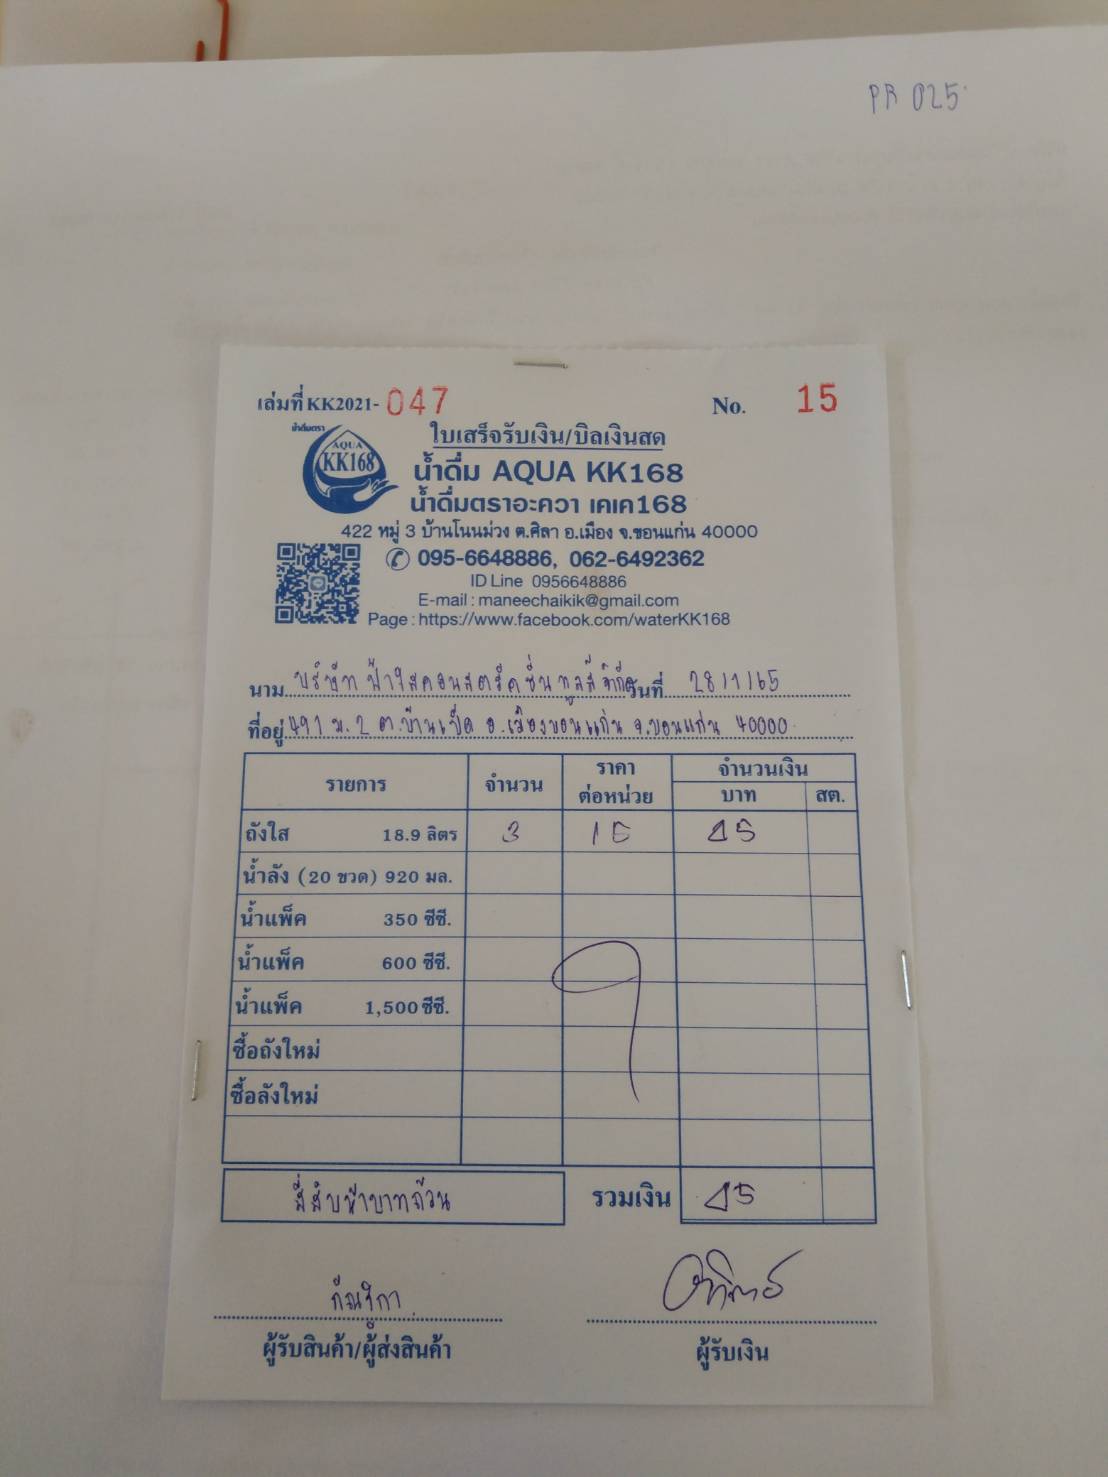 PR 025
เล่มที่ KK2021- 047 No. 15
ใบเสร็จรับเงิน/บิลเงินสด
น้ำดื่มตรา
AQUA
KK168
น้ำดื่ม AQUA KK168
น้ำดื่มตราอะควา เคเค168
422 หมู่ 3 บ้านโนนม่วง ต.ศิลา อ.เมือง จ.ขอนแก่น 40000
095-6648886, 062-6492362
ID Line 0956648886
E-mail : maneechaikik@gmail.com
Page : https://www.facebook.com/waterKK168
นาม บริษัท ฟ้าใสคอนสตรัคชั่น ทูลส์ จำกัด วันที่ 28/1/65
ที่อยู่ 491 ม.2 ต.บ้านเป็ด อ.เมืองขอนแก่น จ.ขอนแก่น 40000
รายการ จำนวน ราคาต่อหน่วย จำนวนเงิน
บาท สต.
ถังใส 18.9 ลิตร 3 15 45
น้ำลัง (20 ขวด) 920 มล.
น้ำแพ็ค 350 ซีซี.
น้ำแพ็ค 600 ซีซี.
น้ำแพ็ค 1,500 ซีซี.
ซื้อถังใหม่
ซื้อลังใหม่
สี่สิบห้าบาทถ้วน รวมเงิน 45
ผู้รับสินค้า/ผู้ส่งสินค้า ผู้รับเงิน